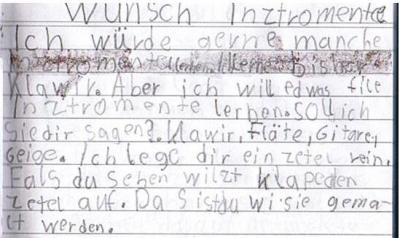 Wunsch Inztromente
Ich würde gerne manche
Inztromente lernen
Klawir. Aber ich will edwas file
Inztromente lernen. Soll ich
sie dir sagen?. Klawir, Flöte, Gitare,
Geige. Ich lege dir ein zetel rein.
Fals du sehen wilzt klap den
zetel auf. Da S istdu wi sie gema-
ct werden.